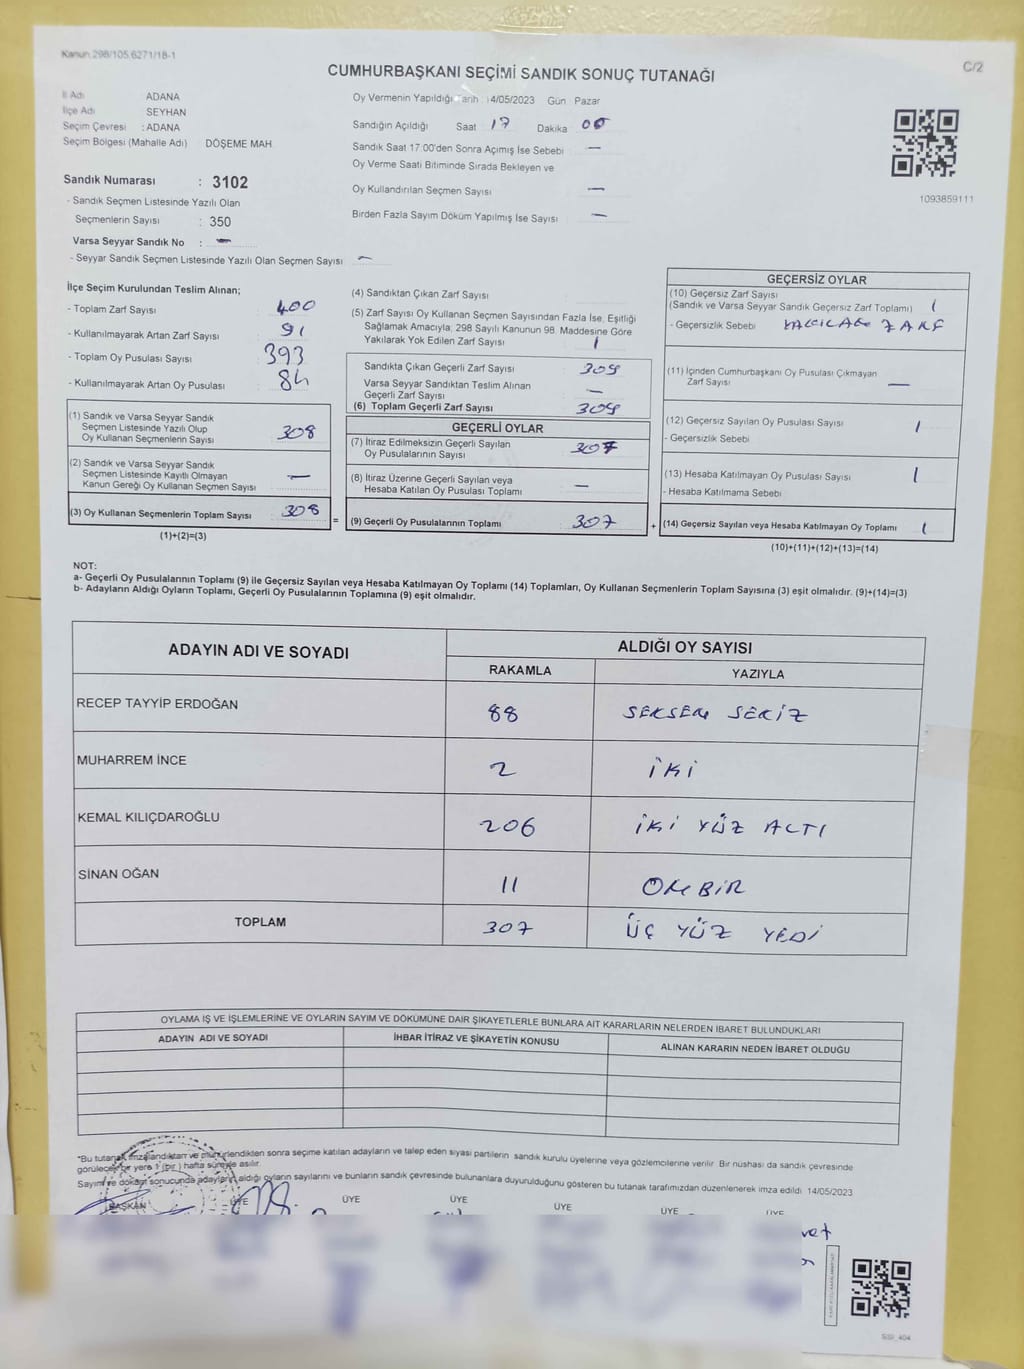 Kanun 298/105,6271/18-1
C/2
CUMHURBAŞKANI SEÇİMİ SANDIK SONUÇ TUTANAĞI
İl Adı ADANA
İlçe Adı SEYHAN
Seçim Çevresi : ADANA
Seçim Bölgesi (Mahalle Adı) DÖŞEME MAH.
Sandık Numarası : 3102
- Sandık Seçmen Listesinde Yazılı Olan
Seçmenlerin Sayısı : 350
Varsa Seyyar Sandık No : —
- Seyyar Sandık Seçmen Listesinde Yazılı Olan Seçmen Sayısı —
Oy Vermenin Yapıldığı Tarih 14/05/2023 Gün Pazar
Sandığın Açıldığı Saat 17 Dakika 00
Sandık Saat 17:00'den Sonra Açımış İse Sebebi —
Oy Verme Saati Bitiminde Sırada Bekleyen ve
Oy Kullandırılan Seçmen Sayısı —
Birden Fazla Sayım Döküm Yapılmış İse Sayısı —
1093859111
İlçe Seçim Kurulundan Teslim Alınan;
- Toplam Zarf Sayısı 400
- Kullanılmayarak Artan Zarf Sayısı 91
- Toplam Oy Pusulası Sayısı 393
- Kullanılmayarak Artan Oy Pusulası 84
(1) Sandık ve Varsa Seyyar Sandık
Seçmen Listesinde Yazılı Olup
Oy Kullanan Seçmenlerin Sayısı 308
(2) Sandık ve Varsa Seyyar Sandık
Seçmen Listesinde Kayıtlı Olmayan
Kanun Gereği Oy Kullanan Seçmen Sayısı —
(3) Oy Kullanan Seçmenlerin Toplam Sayısı 308
(1)+(2)=(3)
(4) Sandıktan Çıkan Zarf Sayısı
(5) Zarf Sayısı Oy Kullanan Seçmen Sayısından Fazla İse, Eşitliği
Sağlamak Amacıyla, 298 Sayılı Kanunun 98. Maddesine Göre
Yakılarak Yok Edilen Zarf Sayısı 1
Sandıkta Çıkan Geçerli Zarf Sayısı 309
Varsa Seyyar Sandıktan Teslim Alınan
Geçerli Zarf Sayısı —
(6) Toplam Geçerli Zarf Sayısı 309
=
GEÇERLİ OYLAR
(7) İtiraz Edilmeksizin Geçerli Sayılan
Oy Pusulalarının Sayısı 307
(8) İtiraz Üzerine Geçerli Sayılan veya
Hesaba Katılan Oy Pusulası Toplamı —
(9) Geçerli Oy Pusulalarının Toplamı 307
+
GEÇERSİZ OYLAR
(10) Geçersiz Zarf Sayısı
(Sandık ve Varsa Seyyar Sandık Geçersiz Zarf Toplamı) 1
- Geçersizlik Sebebi ZARF
(11) İçinden Cumhurbaşkanı Oy Pusulası Çıkmayan
Zarf Sayısı —
(12) Geçersiz Sayılan Oy Pusulası Sayısı 1
- Geçersizlik Sebebi
(13) Hesaba Katılmayan Oy Pusulası Sayısı 1
- Hesaba Katılmama Sebebi
(14) Geçersiz Sayılan veya Hesaba Katılmayan Oy Toplamı 1
(10)+(11)+(12)+(13)=(14)
NOT:
a- Geçerli Oy Pusulalarının Toplamı (9) ile Geçersiz Sayılan veya Hesaba Katılmayan Oy Toplamı (14) Toplamları, Oy Kullanan Seçmenlerin Toplam Sayısına (3) eşit olmalıdır. (9)+(14)=(3)
b- Adayların Aldığı Oyların Toplamı, Geçerli Oy Pusulalarının Toplamına (9) eşit olmalıdır.
ADAYIN ADI VE SOYADI
ALDIĞI OY SAYISI
RAKAMLA YAZIYLA
RECEP TAYYİP ERDOĞAN 88 SEKSEN SEKİZ
MUHARREM İNCE 2 İKİ
KEMAL KILIÇDAROĞLU 206 İKİ YÜZ ALTI
SİNAN OĞAN 11 ONBİR
TOPLAM 307 ÜÇ YÜZ YEDİ
OYLAMA İŞ VE İŞLEMLERİNE VE OYLARIN SAYIM VE DÖKÜMÜNE DAİR ŞİKAYETLERLE BUNLARA AİT KARARLARIN NELERDEN İBARET BULUNDUKLARI
ADAYIN ADI VE SOYADI İHBAR İTİRAZ VE ŞİKAYETİN KONUSU ALINAN KARARIN NEDEN İBARET OLDUĞU
*Bu tutanak imzalandıktan ve mühürlendikten sonra seçime katılan adayların ve talep eden siyasi partilerin sandık kurulu üyelerine veya gözlemcilerine verilir. Bir nüshası da sandık çevresinde
görülecek bir yere 1 (bir ) hafta süreyle asılır.
Sayım ve döküm sonucunda adayların aldığı oyların sayılarını ve bunların sandık çevresinde bulunanlara duyurulduğunu gösteren bu tutanak tarafımızdan düzenlenerek imza edildi. 14/05/2023
BAŞKAN ÜYE ÜYE ÜYE ÜYE ÜYE ÜYE
SSİ_404